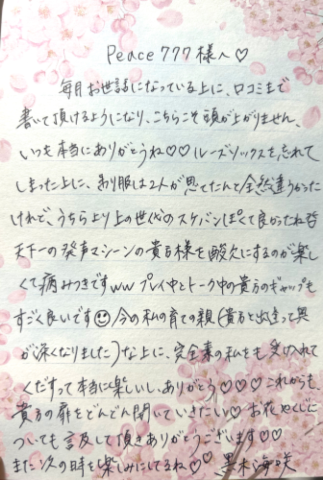 Peace777様へ♡
毎月お世話になっている上に、口コミまで
書いて頂けるようになり、こちらこそ頭が上がりません。
いつも本当にありがとうね♡♡ルーズソックスを忘れて
しまった上に、制服は2人が思てたんて全然違うかった
けれど、うちらより上の世代のスケバンぽくて良かったね
天下一の発声マシーンの貴方様を酸欠にするのが楽し
くて病みつきですwwプレイ中とトーク中の貴方のギャップも
すごく良いです☺今の私の育ての親(貴方と出逢って興
が深くなりました)な上に、完全素の私をも受け入れて
くだすって本当に楽しいし、ありがとう♡♡♡これからも、
貴方の扉をどんどん開いていきたい♡お花やくじに
ついても言及して頂きありがとうございます♡♡
また次の時を楽しみにしてるね♡♡黒木海咲